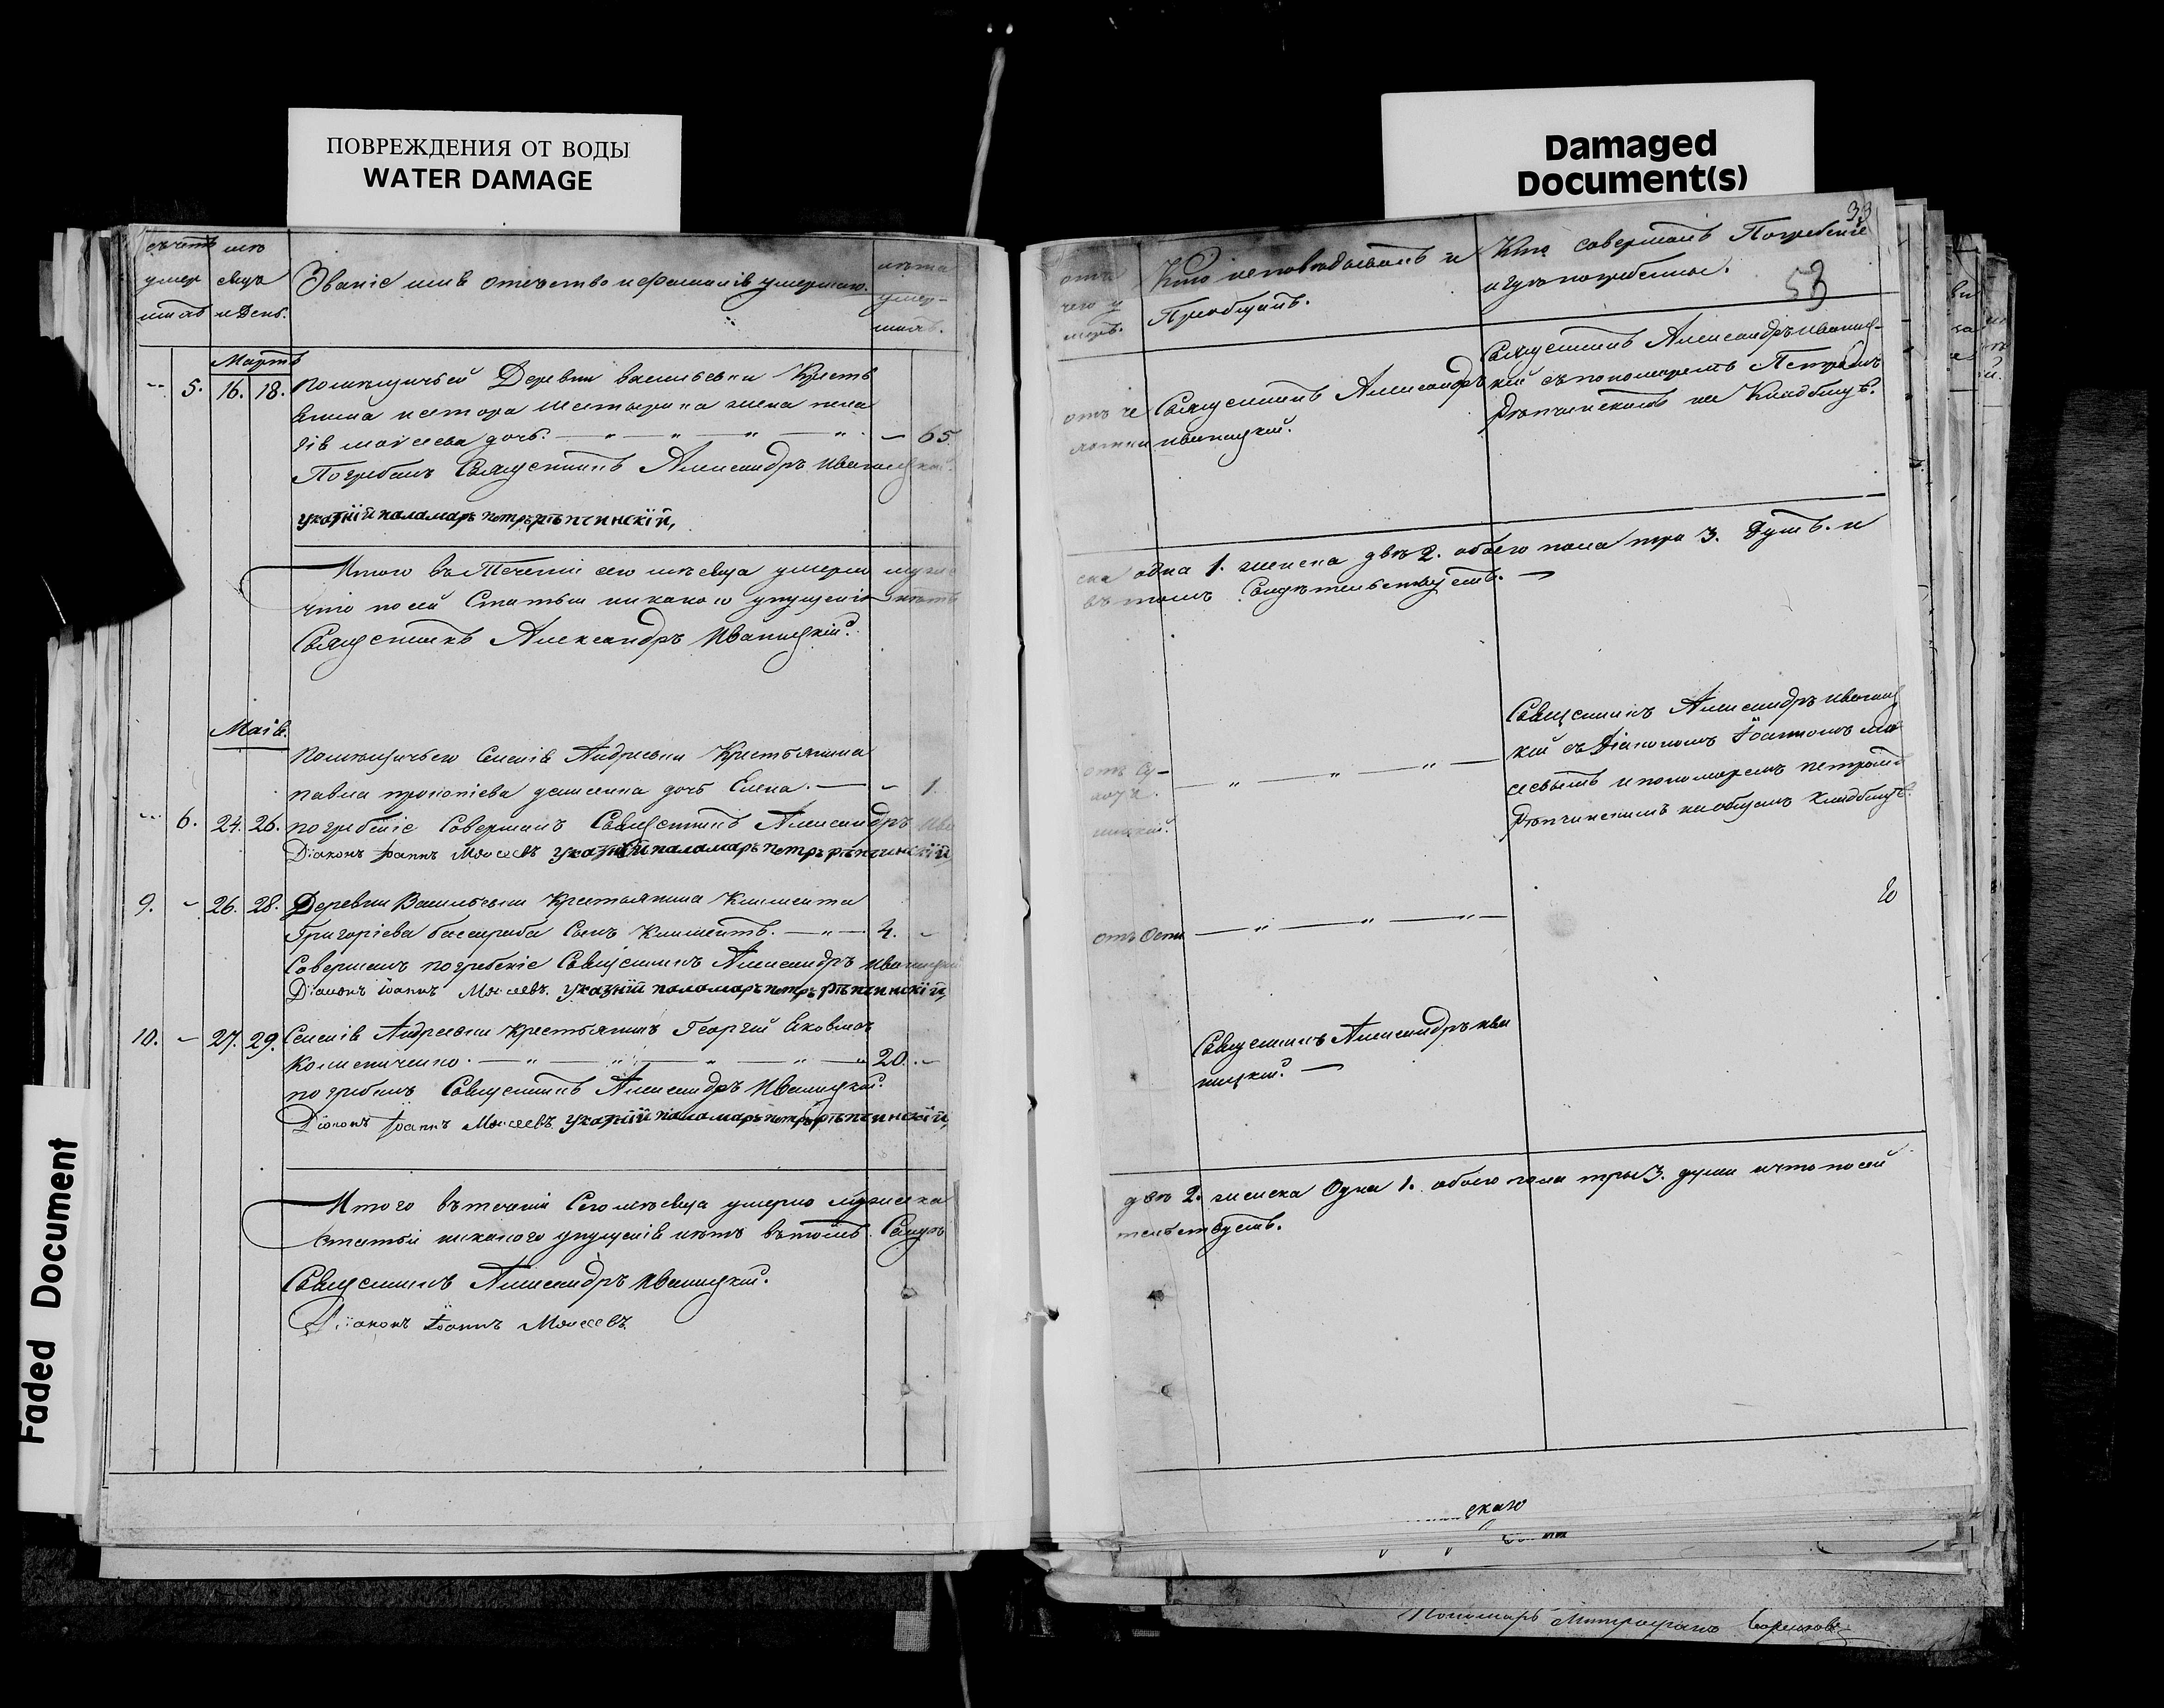 ПОВРЕЖДЕНИЯ ОТ ВОДЫ
WATER DAMAGE
Damaged
Document(s)
Faded Document
счетъ мѣ
умер сяцъ
шихъ и День.
Званіе имя отечество и фамилія умершаго.
лѣта
умер-
шихъ.
Мартъ
5. 16. 18. помѣщичьей Деревни васильевки Кресть
янина нестора жена пела
гія моісеева дочь. — 65.
Погребалъ Священникъ Александръ Иваницкій.
указній паламарь петръ рѣпчинскій,
Итого въ Теченіи сего мѣсяца умерло муже
что по сей Статьи никакого упущенія нѣтъ
Священникъ Александръ Иваницкій.
Маія.
помѣщичьего Селенія Андреевки Крестьянина
павла прокопіева дочь Елена. — 1.
6. 24. 26. погребеніе Совершалъ Священникъ Александръ Ива
Діаконъ Іоаннъ Моисеевъ указній паламарь петръ рѣпчинскій,
9. - 26. 28. Деревни Васильевки крестьянина Климента
Григоріева Сынъ Климентъ. — 4. -
Совершалъ погребеніе Священникъ Александръ Иваницкій
Діаконъ Іоаннъ Моисеевъ. указній паламарь петръ рѣпчинскій,
10. - 27. 29. Селенія Андреевки крестьянинъ Георгій Яковлевъ
— 20. -
погребалъ Священникъ Александръ Иваницкій.
Діаконъ Іоаннъ Моисеевъ указній паламарь петръ рѣпчинскій,
Итого въ теченіи Сего мѣсяца умерло мужеска
статьи никакого упущенія нѣтъ въ томъ Свидѣ
Священникъ Александръ Иваницкій.
Діаконъ Іоаннъ Моисеевъ
33
53
отъ
чего у
меръ.
Кто исповѣдывалъ и
Пріобщалъ.
Кто совершалъ Погребеніе
и гдѣ погребенны.
Священникъ Александръ
иваницкій.
Священникъ Александръ Иваниц-
кій съ пономаремъ Петромъ
Рѣпчинскимъ на Кладбищѣ.
ска одна 1. женска двѣ 2. обоего пола три 3. Душъ. и
въ томъ Свидѣтельствуемъ. —
Священникъ Александръ Иваниц
кій съ Діакономъ Іоанномъ мои
сеевымъ и пономаремъ петромъ
Рѣпчинскимъ на общемъ кладбищѣ.
отъ Оспы
Священникъ Александръ ива
ницкій. —
двѣ 2. женска Одна 1. обоего пола три 3. души и что по сей
тельствуемъ.
скаго
Пономарь Митрофанъ